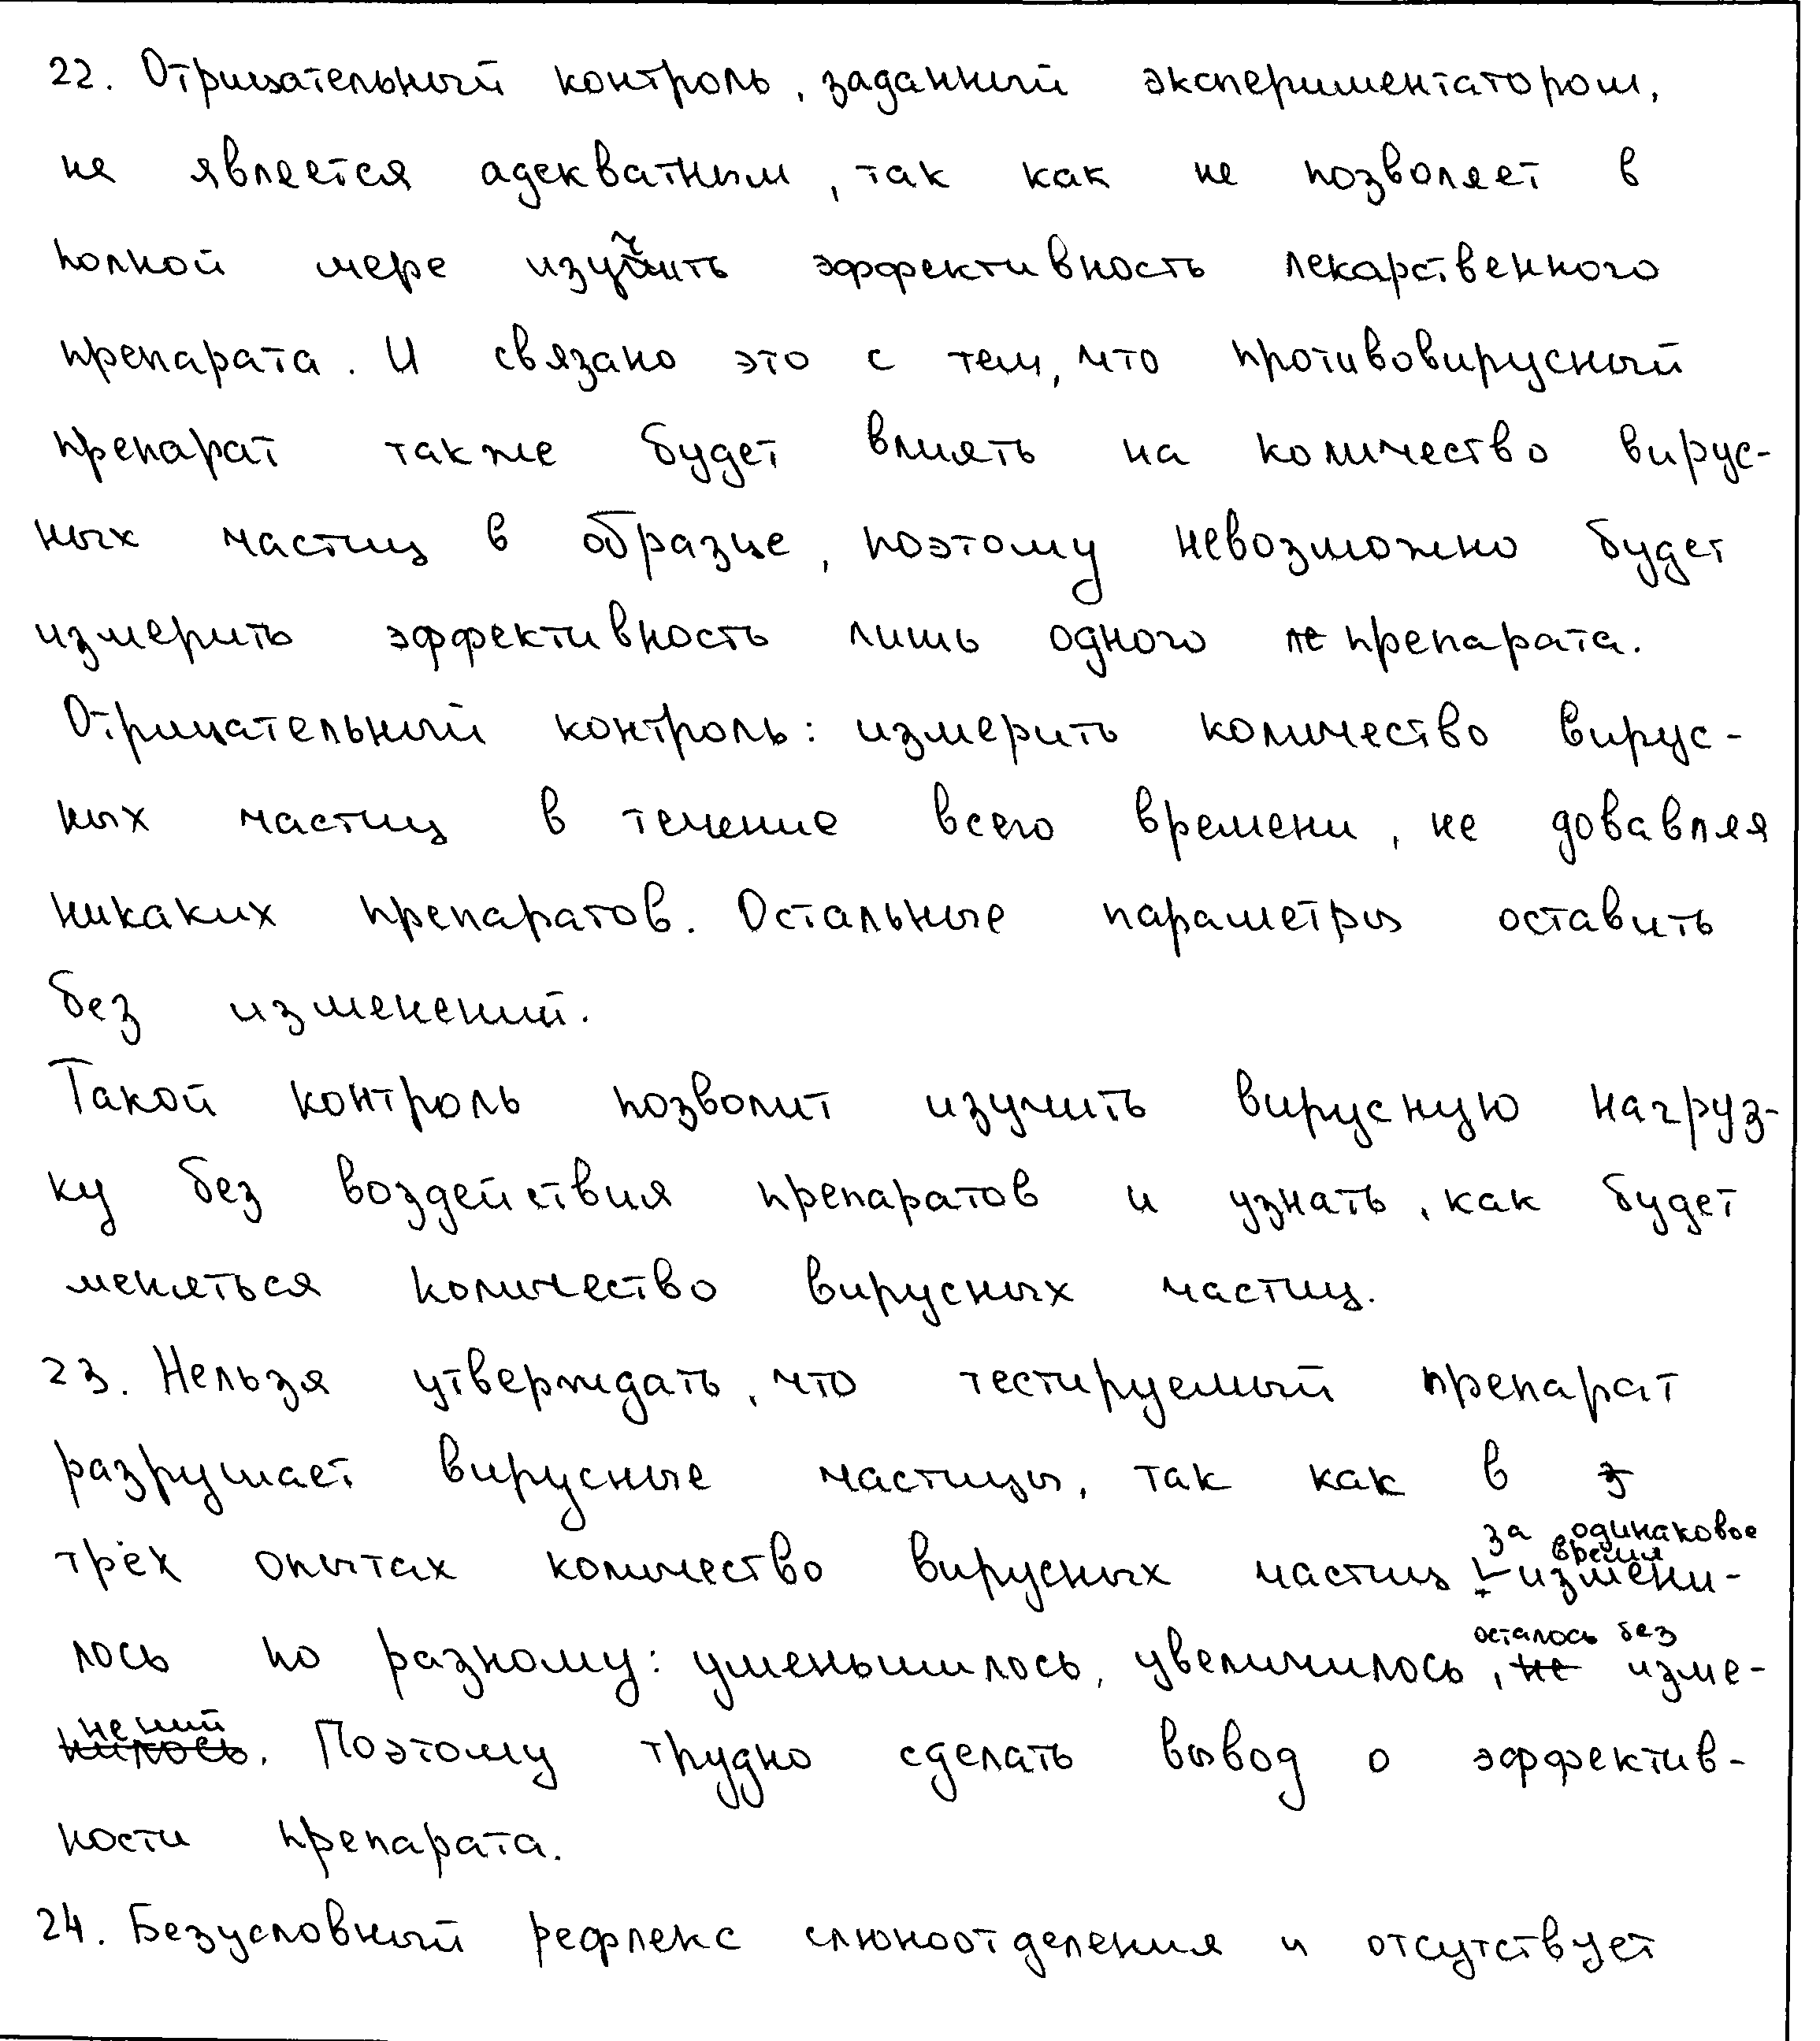 22. Отрицательный контроль, заданный экспериментатором,
не является адекватным, так как не позволяет в
полной мере изучить эффективность лекарственного
препарата. И связано это с тем, что противовирусный
препарат также будет влиять на количество вирус-
ных частиц в образце, поэтому невозможно будет
измерить эффективность лишь одного ле препарата.
Отрицательный контроль: измерить количество вирус-
ных частиц в течение всего времени, не довавляя
никаких препаратов. Остальные параметры оставить
без изменений.
Такой контроль позволит изучить вирусную нагруз-
ку без воздействия препаратов и узнать, как будет
меняться количество вирусных частиц.
23. Нельзя утверждать, что тестируемый препарат
разрушает вирусные частицы, так как в 3
за одинаковое время
трёх опытах количество вирусных частиц измени-
осталось без
лось по разному: уменьшилось, увеличилось, не изме-
нений
нилось. Поэтому трудно сделать вывод о эффектив-
ности препарата.
24. Безусловный рефлекс слюноотделения и отсутствует